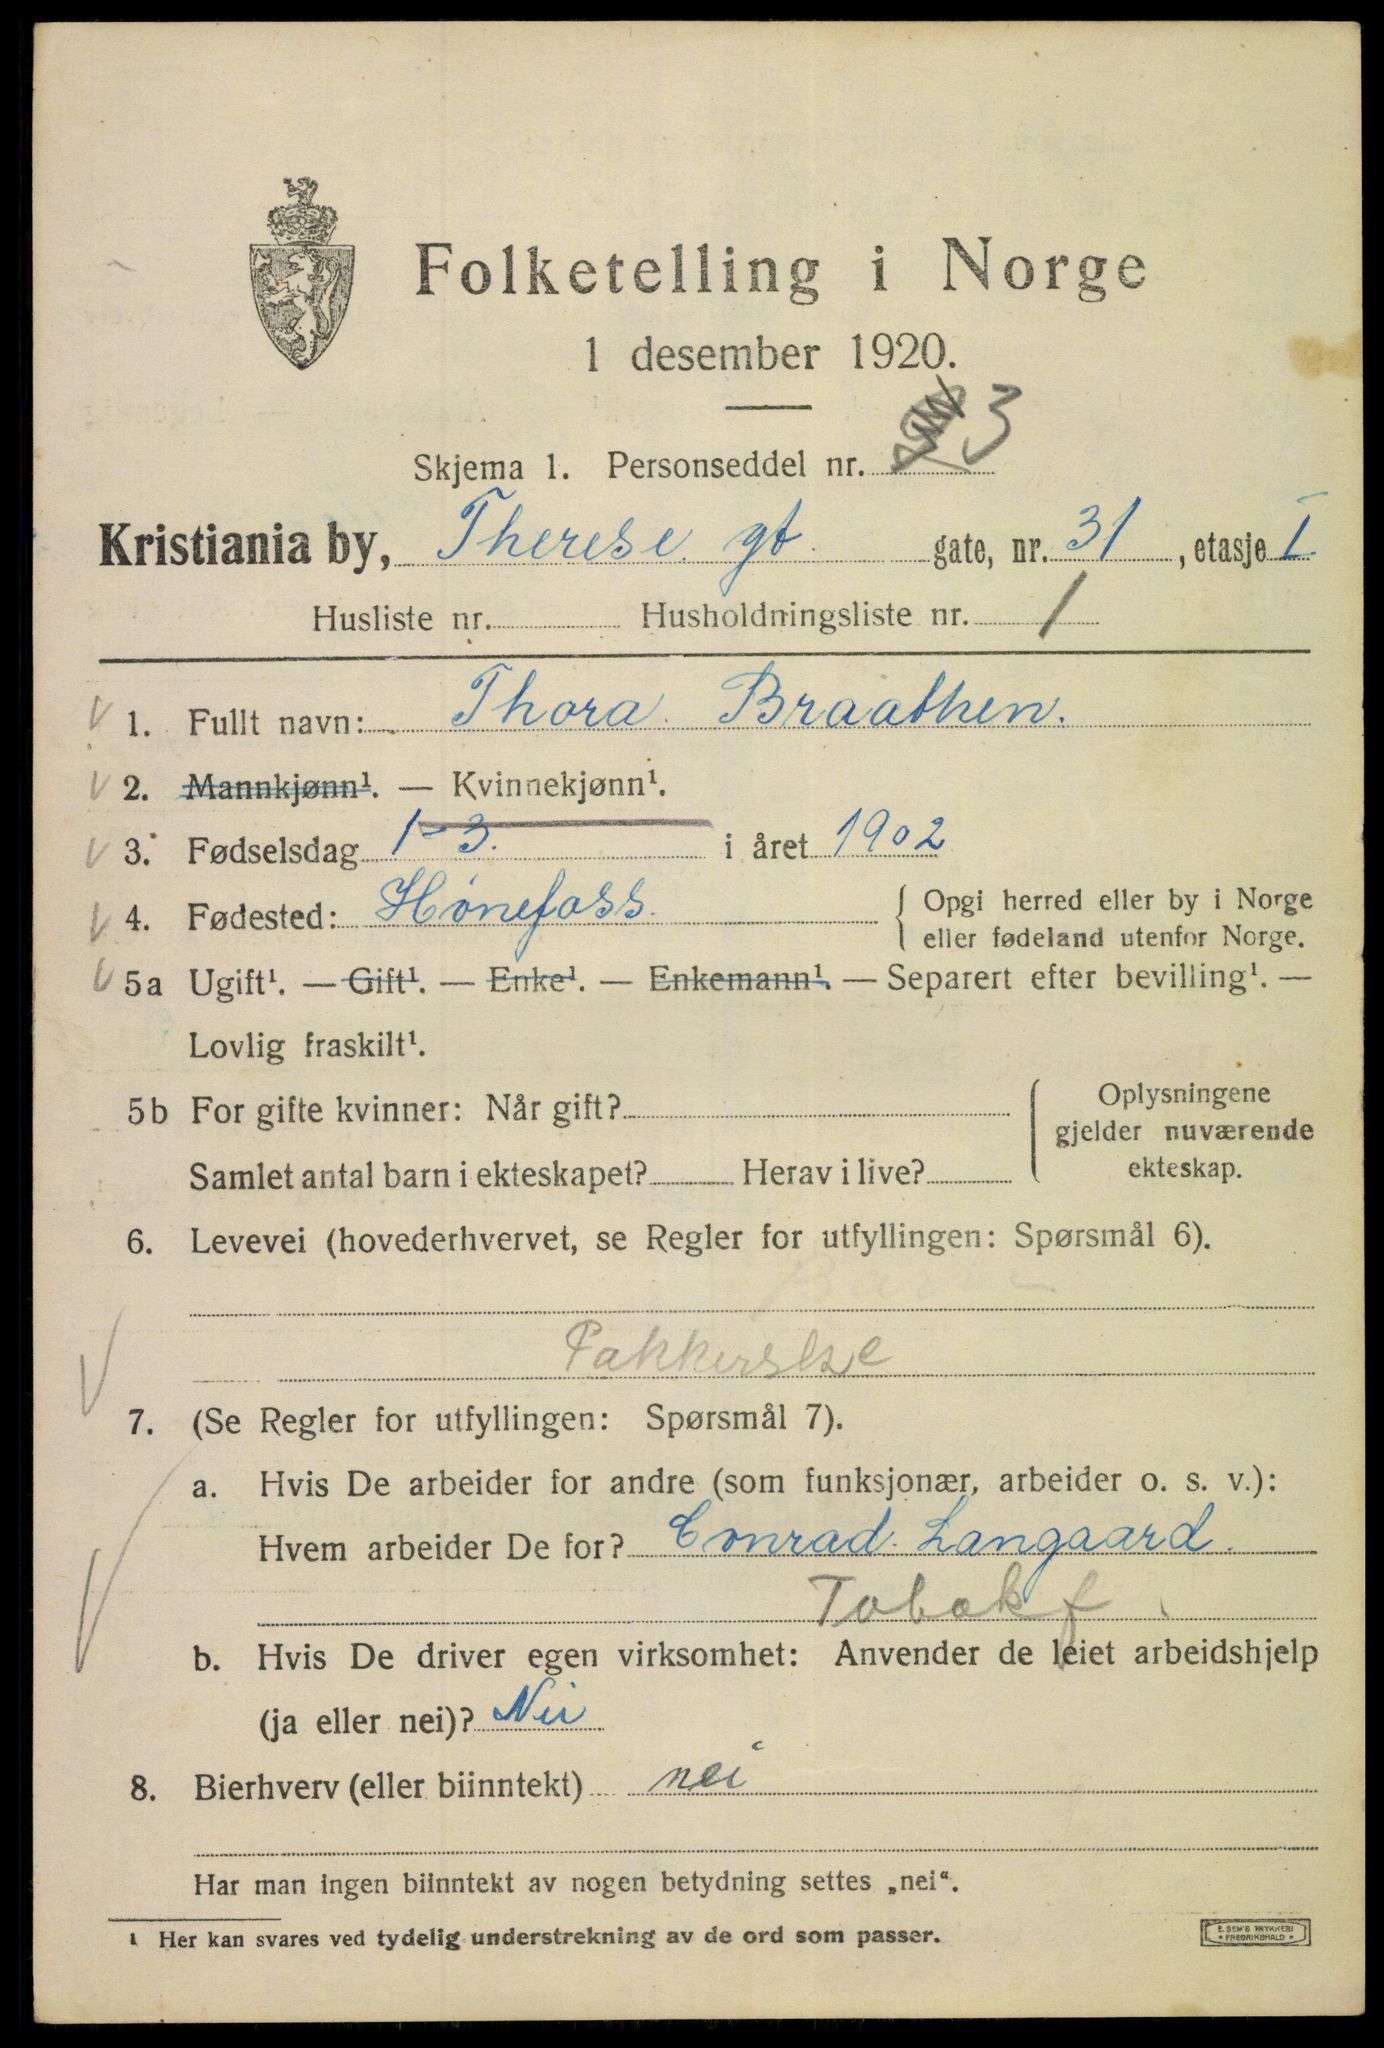 Folketelling i Norge
1 desember 1920.
Skjema 1. Personseddel nr. 3
Kristiania by, Therese gt. gate, nr. 31, etasje I
Husliste nr. Husholdningsliste nr. 1
1. Fullt navn: Thora Braathen.
2. Mannkjønn¹. — Kvinnekjønn¹.
3. Fødselsdag 1-3. i året 1902
4. Fødested: Hønefoss. { Opgi herred eller by i Norge
eller fødeland utenfor Norge.
5a Ugift¹. — Gift¹. — Enke¹. — Enkemann¹. — Separert efter bevilling¹. —
Lovlig fraskilt¹.
5b For gifte kvinner: Når gift?
Samlet antal barn i ekteskapet? Herav i live?
{ Oplysningene
gjelder nuværende
ekteskap.
6. Levevei (hovederhvervet, se Regler for utfyllingen: Spørsmål 6).
Pakkerske
7. (Se Regler for utfyllingen: Spørsmål 7).
a. Hvis De arbeider for andre (som funksjonær, arbeider o. s. v.):
Hvem arbeider De for? Conrad Langaard.
Tobakf.
b. Hvis De driver egen virksomhet: Anvender de leiet arbeidshjelp
(ja eller nei)? Nei
8. Bierhverv (eller biinntekt) nei
Har man ingen biinntekt av nogen betydning settes „nei“.
¹ Her kan svares ved tydelig understrekning av de ord som passer.
E. SEM'S TRYKKERI
* FREDRIKSHALD *